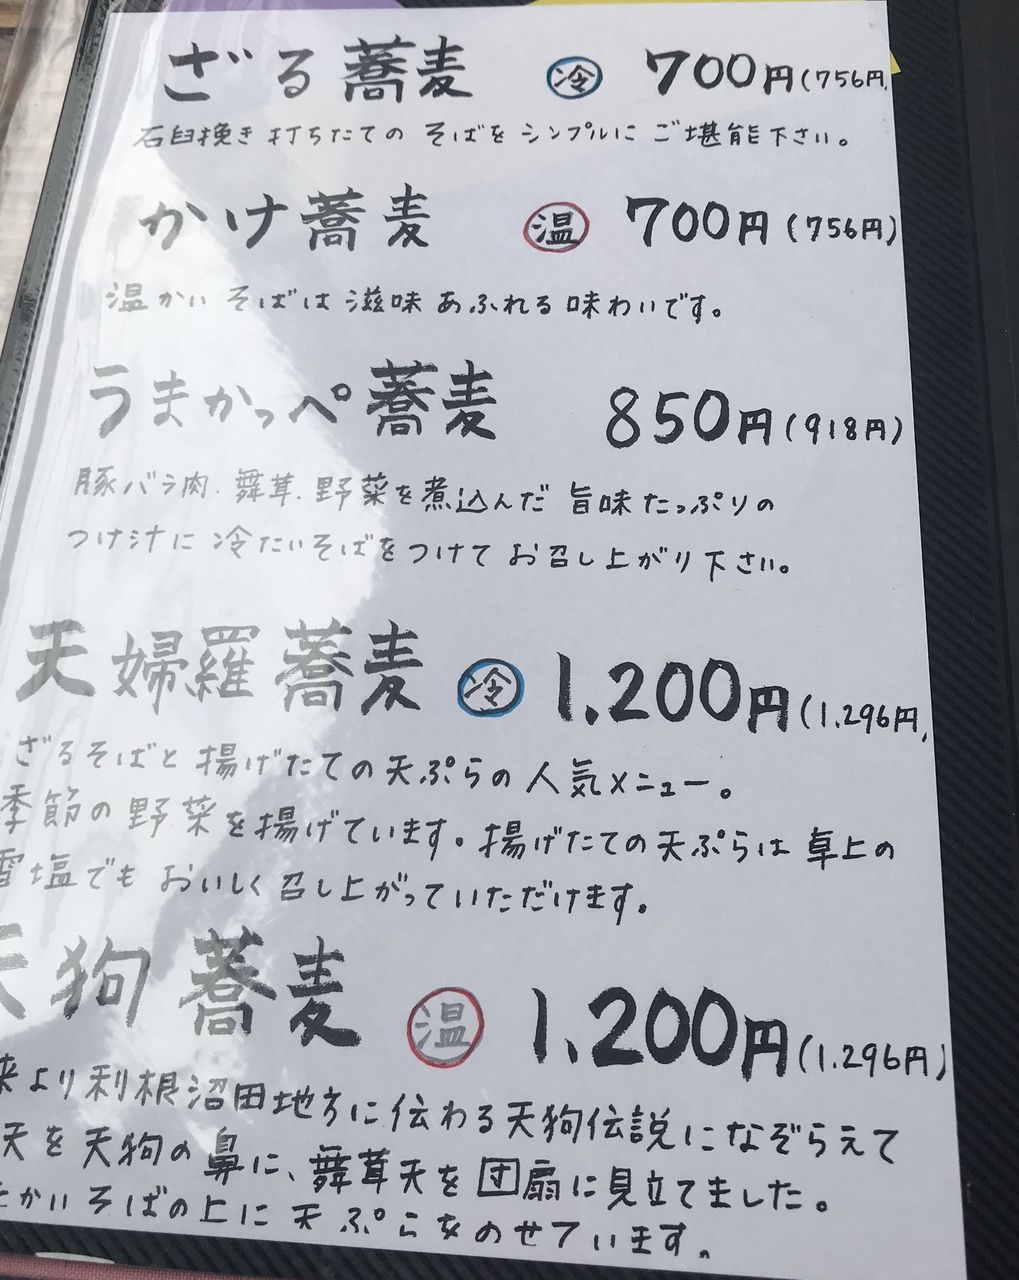 ざる蕎麦 冷 700円(756円
石臼挽き打ちたての そばを シンプルに ご堪能下さい。
かけ蕎麦 温 700円(756円)
温かい そばは 滋味 あふれる 味わいです。
うまかっぺ蕎麦 850円(918円)
豚バラ肉、舞茸、野菜を煮込んだ 旨味たっぷりの
つけ汁に 冷たいそばをつけて お召し上がり下さい。
天婦羅蕎麦 冷 1.200円(1.296円
ざるそばと 揚げたての天ぷらの 人気メニュー。
季節の野菜を揚げています。揚げたての天ぷらは 卓上の
雪塩でも おいしく 召し上がっていただけます。
天狗蕎麦 温 1.200円(1.296円)
来より利根沼田地方に伝わる天狗伝説になぞらえて
天を天狗の鼻に、舞茸天を団扇に見立てました。
かいそばの上に天ぷらをのせています。